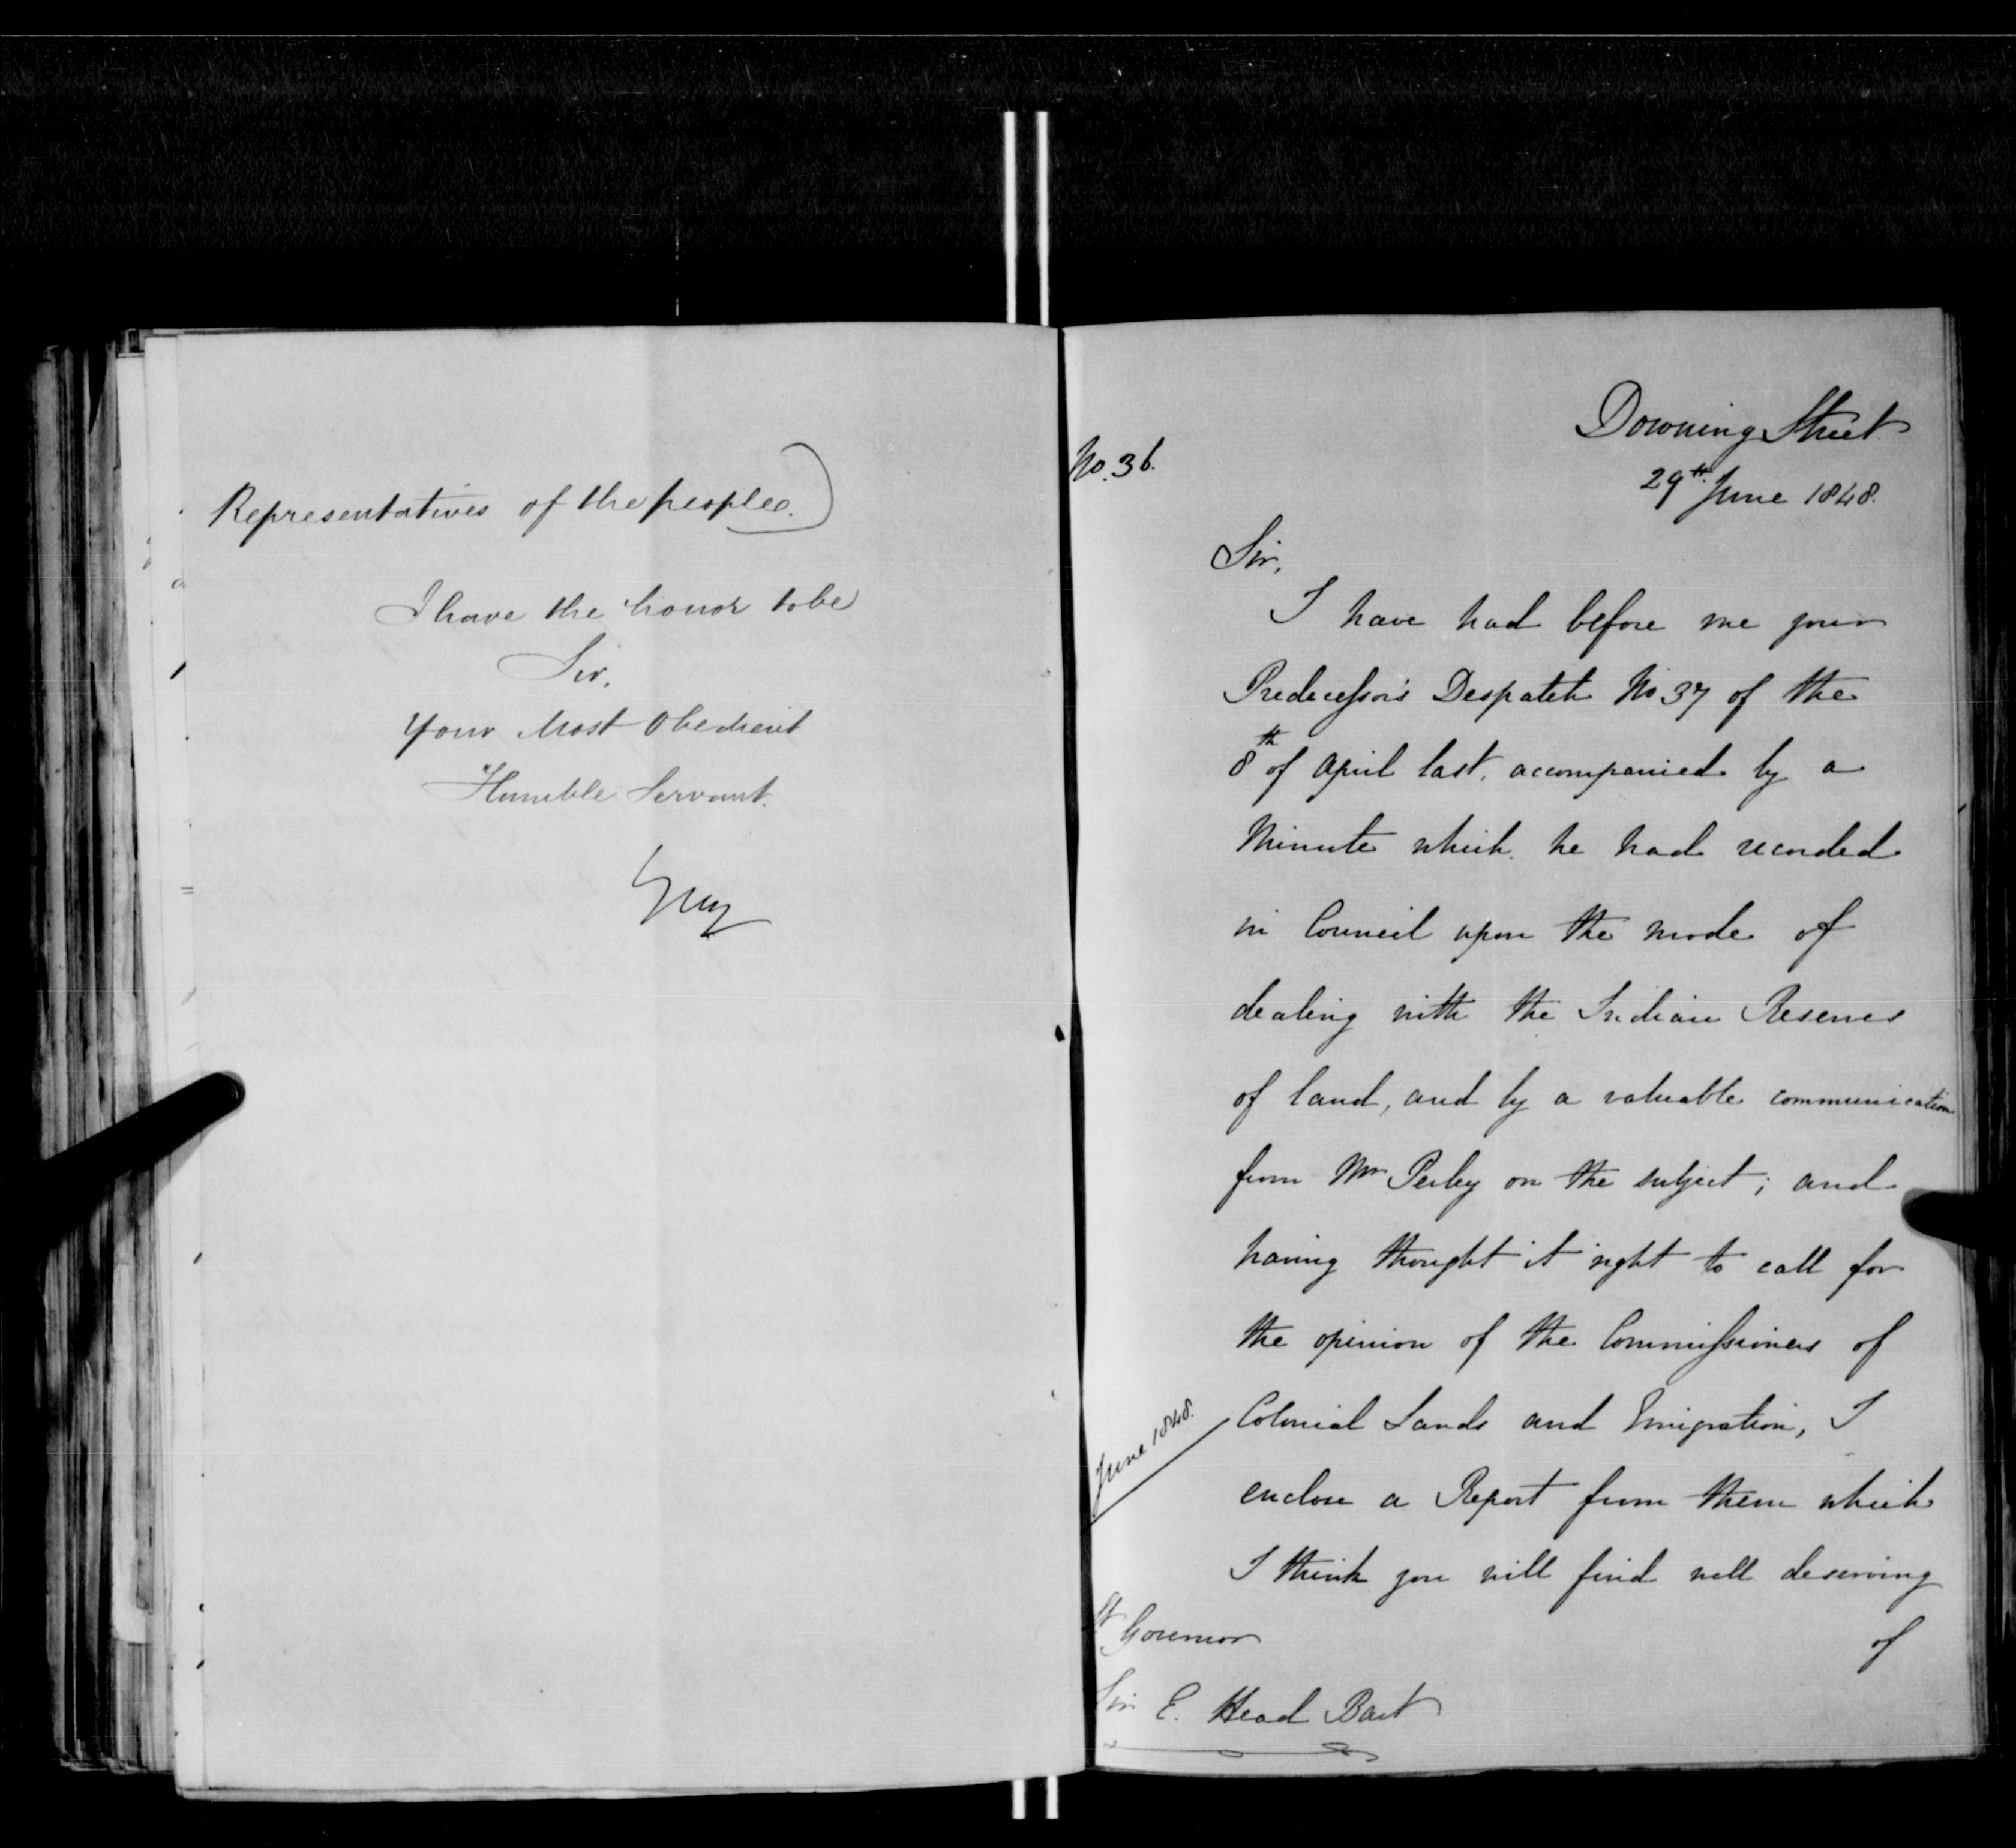 Representatives of the people.
I have the honor to be
Sir,
Your Most Obedient
Humble Servant.
Grey
Downing Street
No. 36.
29th June 1848.
Sir,
I have had before me your
Predecessor's Despatch No 37 of the
8th of April last, accompanied by a
Minute which he had recorded
in Council upon the mode of
dealing with the Indian Reserves
of land, and by a valuable communication
from Mr Perley on the subject; and
having thought it right to call for
the opinion of the Commissioners of
Colonial Lands and Emigration, I
June 1848.
enclose a Report from them which
I think you will find well deserving
of
Lt Governor
Sir E. Head Bart